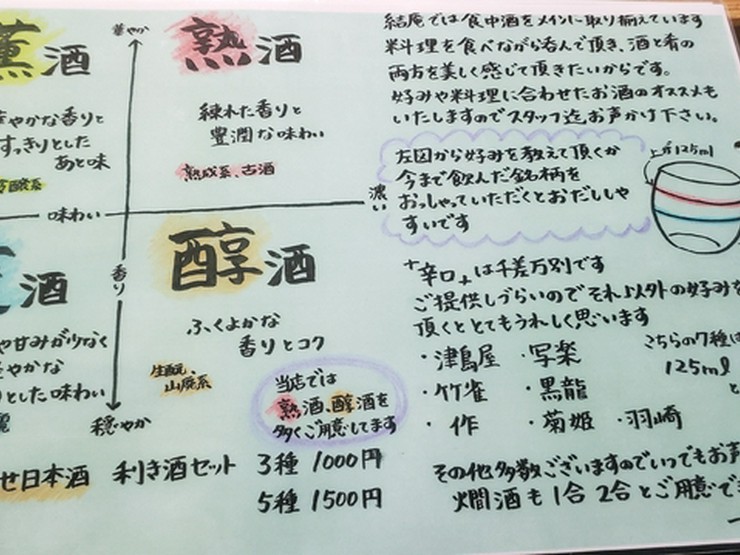 薫酒
華やか
やかな香りと
すっきりとした
あと味
吟醸系
熟酒
練れた香りと
豊潤な味わい
熟成系、古酒
味わい
濃い
香り
酒
や甘みが少なく
やかな
とした味わい
醇酒
ふくよかな
香りとコク
生酛、
山廃系
穏やか
当店では
熟酒、醇酒を
多くご用意してます
せ日本酒 利き酒セット 3種 1000円
5種 1500円
結庵では食中酒をメインに取り揃えています
料理を食べながら呑んで頂き、酒と肴の
両方を美しく感じて頂きたいからです。
好みや料理に合わせたお酒のオススメも
いたしますのでスタッフ迄お声かけ下さい。
左図から好みを教えて頂くか
今まで飲んだ銘柄を
おっしゃっていただくとおだししや
すいです
上が125ml
「辛口」は千差万別です
ご提供しづらいのでそれ以外の好みを
頂くととてもうれしく思います
・津島屋 ・写楽
・竹雀 ・黒龍
・作 ・菊姫 ・羽崎
こちらの7種は
125ml
と
その他多数ございますのでいつでもお声
燗酒も1合 2合とご用意で